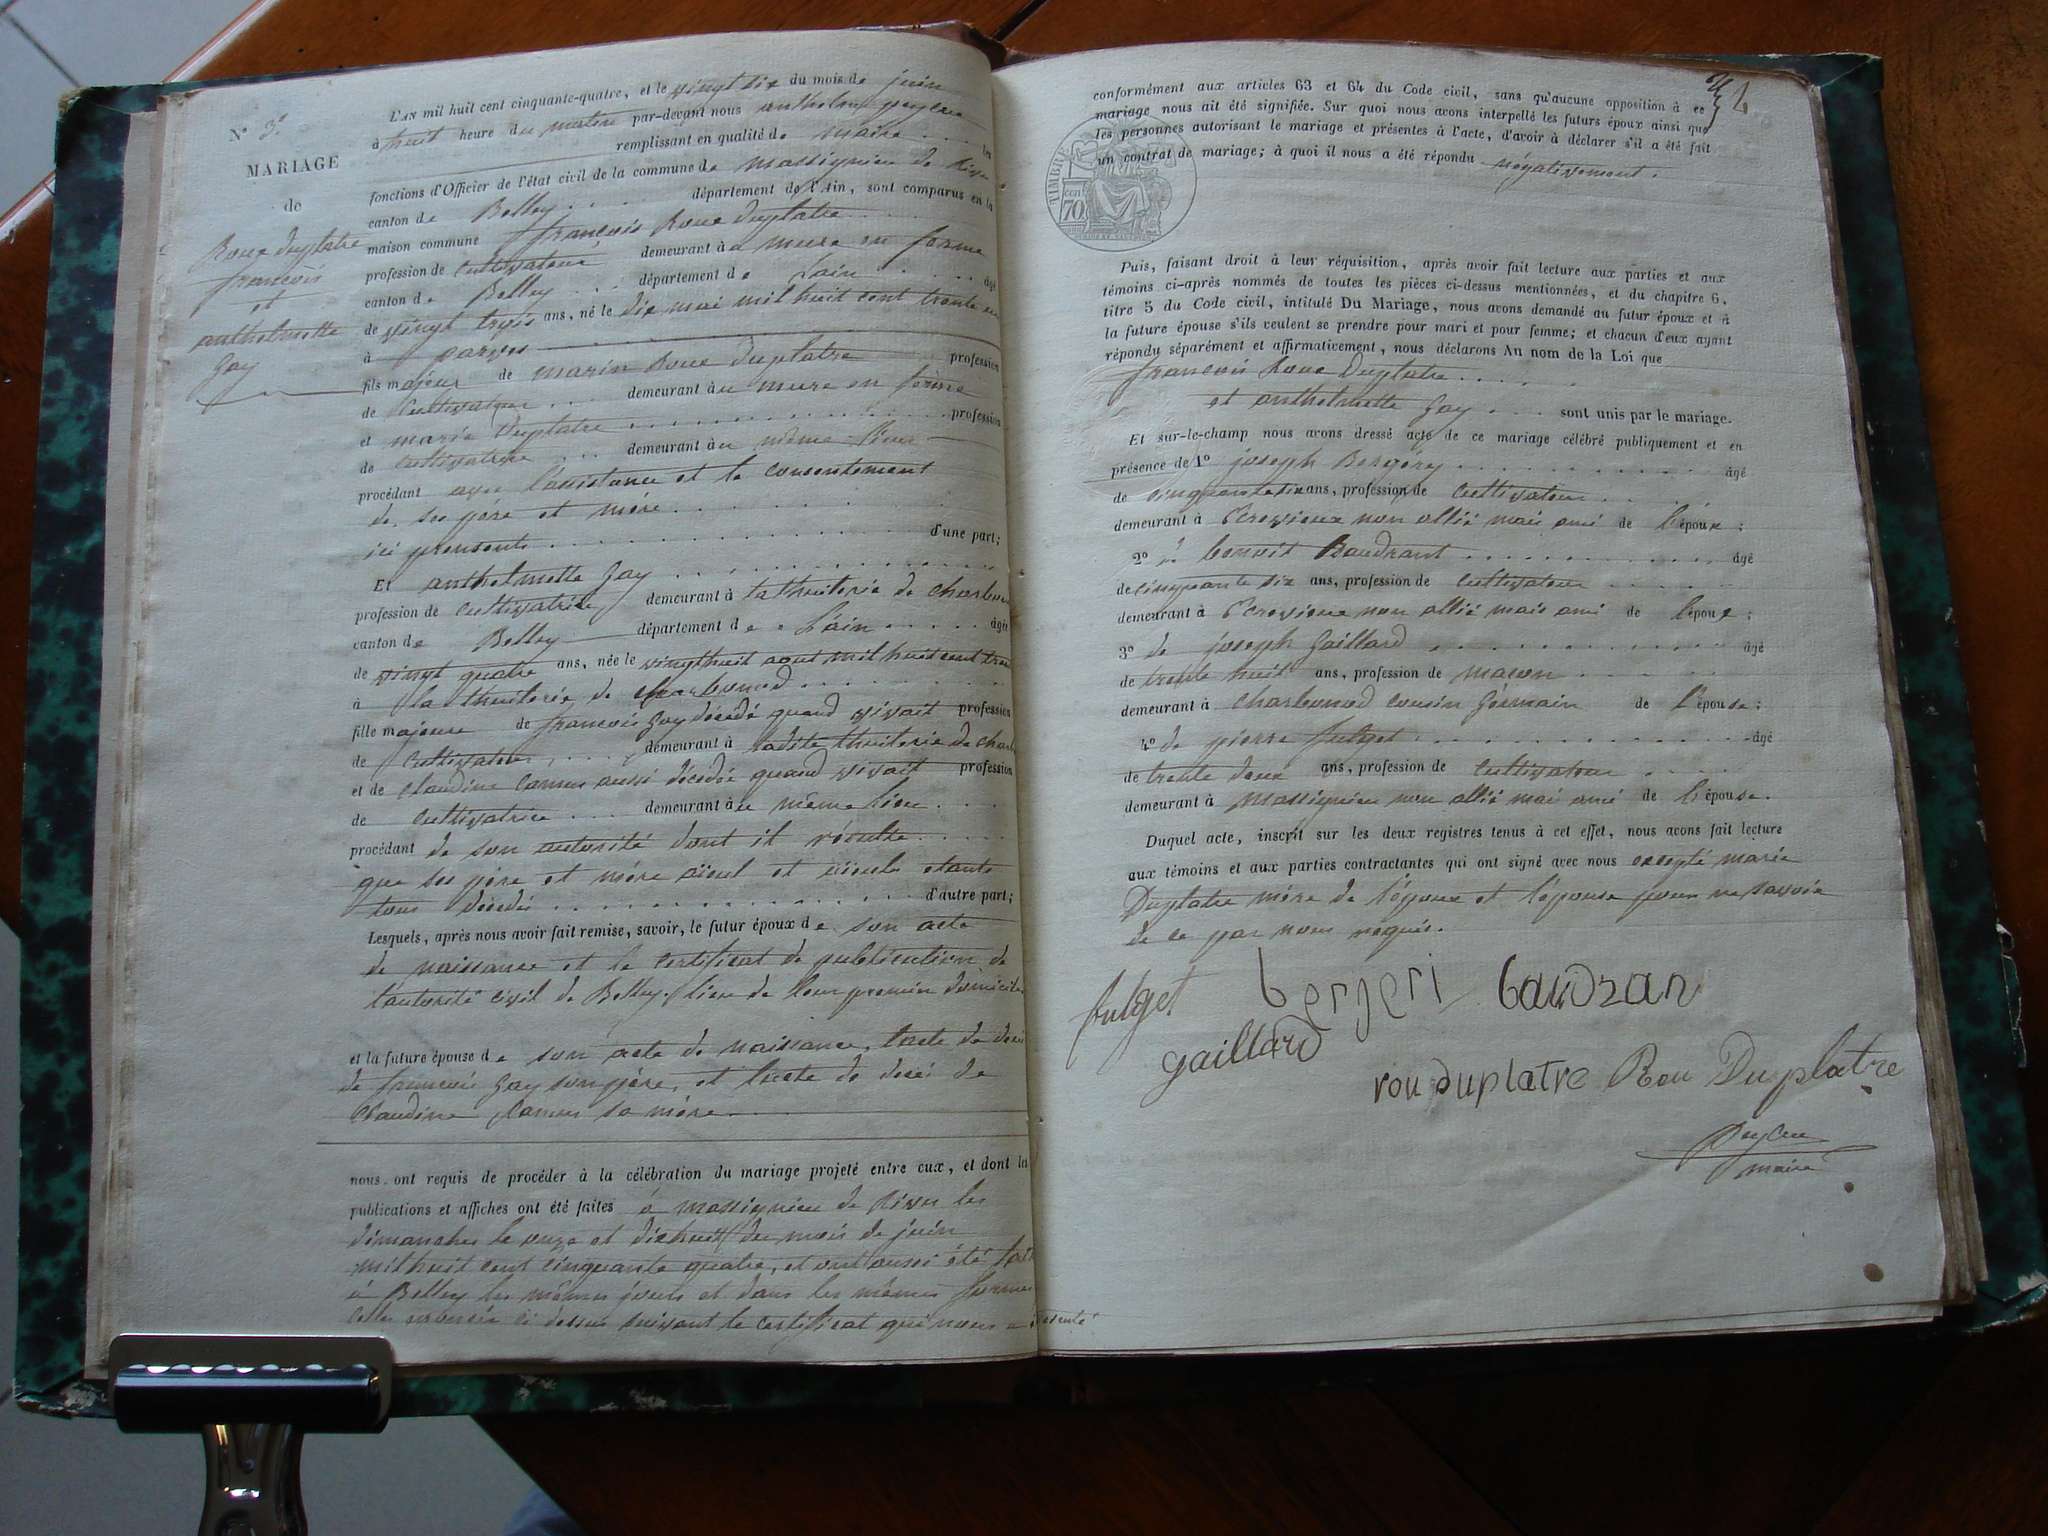 N° 3.e
MARIAGE
de
Roux Duplatre
francois
et
anthelmette
Gay
L'AN mil huit cent cinquante-quatre, et le vingt six du mois de juin
à huit heure du matin par-devant nous anthelme
remplissant en qualité de maire les
fonctions d'Officier de l'état civil de la commune de massignieu de Rives
canton de Belley département de l'Ain, sont comparus en la
maison commune francois Roux Duplatre
profession de cultivateur demeurant à
canton de Belley département de Lain âgé
de vingt trois ans, né le dix mai mil huit cent trente un
à parves
fils majeur de marin Roux Duplatre profession
de cultivateur demeurant à
et marie Duplatre profession
de cultivatrice demeurant au même lieu
procédant avec l'assistance et le consentement
de ses père et mère
ici presents d'une part;
Et anthelmette Gay
profession de cultivatrice demeurant à la thuilerie de charbonod
canton de Belley département de Lain âgée
de vingt quatre ans, née le vingthuit aout mil huit cent
à la thuilerie de charbonod
fille majeure de francois Gay décédé quand vivait profession
de cultivateur demeurant à ladite thuilerie de
et de claudine Camus aussi décédée quand vivait profession
de cultivatrice demeurant au même lieu
procédant de son autorité dont il résulte
que ses père et mère aieul et aieule etants
tous décédés d'autre part;
Lesquels, après nous avoir fait remise, savoir, le futur époux de son acte
de naissance et le certificat de publication de
l'autorité civil de Belley lieu de leur premier domicile
et la future épouse de son acte de naissance, l'acte de deces
de francois Gay son père, et l'acte de deces de
Claudine Camus sa mère
nous ont requis de procéder à la célébration du mariage projeté entre eux, et dont les
publications et affiches ont été faites à massignieu de Rives les
dimanches le onze et dixhuit du mois de juin
mil huit cent cinquante quatre, et ont aussi été
à Belley les mêmes jours et dans les mêmes formes
ci dessus suivant le certificat qui nous a
conformément aux articles 63 et 64 du Code civil, sans qu'aucune opposition à ce
mariage nous ait été signifiée. Sur quoi nous avons interpellé les futurs époux ainsi que
les personnes autorisant le mariage et présentes à l'acte, d'avoir à déclarer s'il a été fait
un contrat de mariage; à quoi il nous a été répondu négativement.
TIMBRE
70
Puis, faisant droit à leur réquisition, après avoir fait lecture aux parties et aux
témoins ci-après nommés de toutes les pièces ci-dessus mentionnées, et du chapitre 6,
titre 5 du Code civil, intitulé Du Mariage, nous avons demandé au futur époux et à
la future épouse s'ils veulent se prendre pour mari et pour femme; et chacun d'eux ayant
répondu séparément et affirmativement, nous déclarons Au nom de la Loi que
francois Roux Duplatre
et anthelmette Gay sont unis par le mariage.
Et sur-le-champ nous avons dressé acte de ce mariage célébré publiquement et en
présence de 1° joseph Bergéry âgé
de cinquante six ans, profession de cultivateur
demeurant à non allié mais ami de l'époux;
2° benoit Baudrant âgé
de cinquante six ans, profession de cultivateur
demeurant à non allié mais ami de l'époux;
3° de joseph Gaillard âgé
de trente huit ans, profession de macon
demeurant à charbonod cousin Germain de l'épouse;
4° de pierre fulget âgé
de trente deux ans, profession de cultivateur
demeurant à Massignieu non allié mai ami de l'épouse.
Duquel acte, inscrit sur les deux registres tenus à cet effet, nous avons fait lecture
aux témoins et aux parties contractantes qui ont signé avec nous excepté marie
Duplatre mère de l'époux et l'épouse pour ne savoir
de ce par nous requis.
fulget bergeri baudran
gaillard
rou duplatre Rou Duplatre
maire